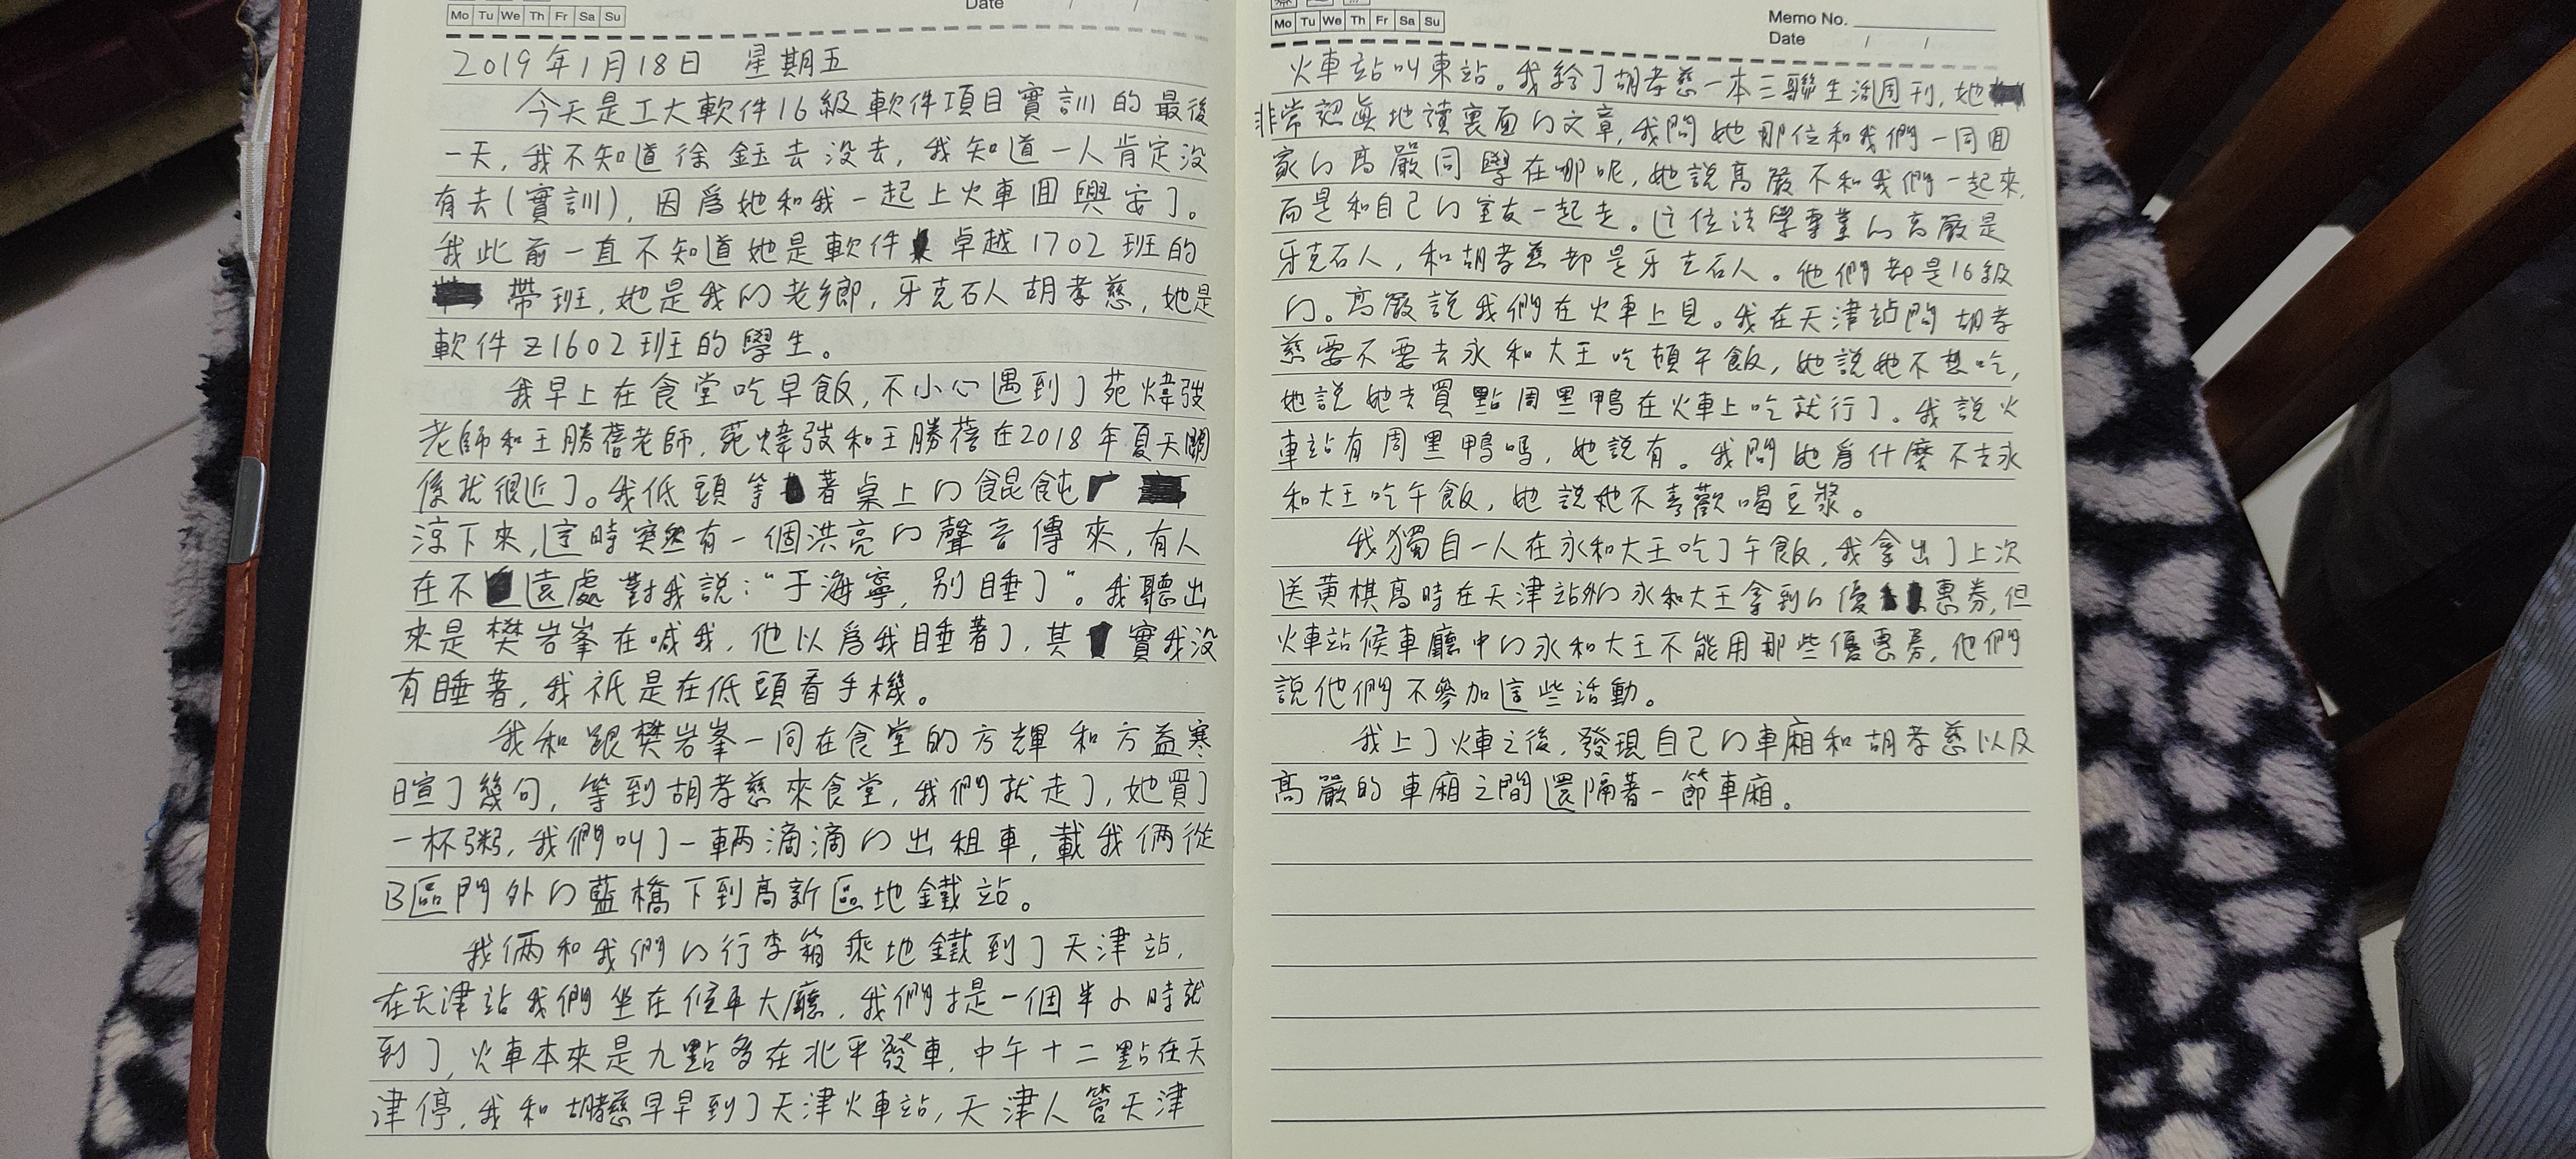 Mo Tu We Th Fr Sa Su
Date / /
2019年1月18日 星期五
今天是工大軟件16級軟件項目實訓的最後
一天,我不知道徐鈺去没去,我知道一人肯定没
有去(實訓),因爲她和我一起上火車囬興安了。
我此前一直不知道她是軟件卓越1702班的
帶班,她是我的老鄉,牙克石人胡孝慈,她是
軟件Z1602班的學生。
我早上在食堂吃早飯,不小心遇到了苑煒弢
老師和王勝蓓老師,苑煒弢和王勝蓓在2018年夏天關
係就很近了。我低頭等著桌上的餛飩
涼下來,這時突然有一個洪亮的聲音傳來,有人
在不遠處對我説:“于海寧,别睡了”。我聽出
來是樊岩峯在喊我,他以爲我睡著了,其實我没
有睡著,我祇是在低頭看手機。
我和跟樊岩峯一同在食堂的方輝和方益寒
暄了幾句,等到胡孝慈來食堂,我們就走了,她買了
一杯粥,我們叫了一輛滴滴的出租車,載我倆從
B區門外的藍橋下到高新區地鐵站。
我倆和我們的行李箱乘地鐵到了天津站,
在天津站我們坐在候車大廳,我們才是一個半小時就
到了,火車本來是九點多在北平發車,中午十二點在天
津停,我和胡孝慈早早到了天津火車站,天津人管天津
Mo Tu We Th Fr Sa Su
Memo No.
Date / /
火車站叫東站。我給了胡孝慈一本三聯生活周刊,她
非常認眞地讀裏面的文章,我問她那位和我們一同囬
家的高嚴同學在哪呢,她説高嚴不和我們一起來,
而是和自己的室友一起走。这位法學專業的高嚴是
牙克石人,和胡孝慈都是牙克石人。他們都是16級
的。高嚴説我們在火車上見。我在天津站問胡孝
慈要不要去永和大王吃頓午飯,她説她不想吃,
她説她去買點周黑鴨在火車上吃就行了。我説火
車站有周黑鴨嗎,她説有。我問她爲什麽不去永
和大王吃午飯,她説她不喜歡喝豆漿。
我獨自一人在永和大王吃了午飯,我拿出了上次
送黄棋高時在天津站外的永和大王拿到的優惠券,但
火車站候車廳中的永和大王不能用那些優惠券,他們
説他們不參加這些活動。
我上了火車之後,發現自己的車廂和胡孝慈以及
高嚴的車廂之間還隔著一節車廂。